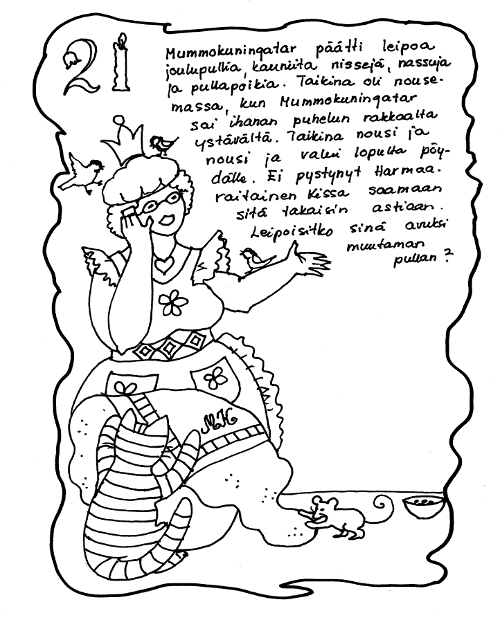 21
Mummokuningatar päätti leipoa
joulupullia, kauniita nissejä, nassuja
ja pullapoikia. Taikina oli nouse-
massa, kun Mummokuningatar
sai ihanan puhelun rakkaalta
ystävältä. Taikina nousi ja
nousi ja valui lopulta pöy-
dälle. Ei pystynyt Harmaa-
raitainen Kissa saamaan
sitä takaisin astiaan.
Leipoisitko sinä avuksi
muutaman
pullan?
MK